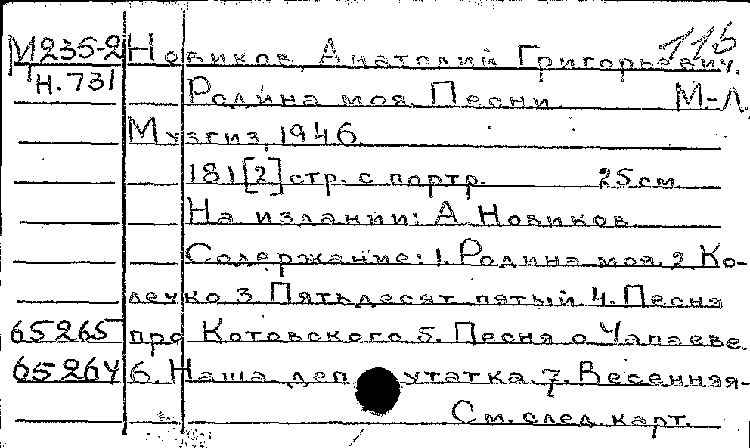 116
М235-2 Новиков, Анатолий Григорьевич.
Н.731 Родина моя. Песни. М-Л,
Музгиз, 1946
181[2]стр. с портр. 25см
На издании: А Новиков
Содержание: 1. Родина моя. 2 Ко-
лечко 3 Пятьдесят пятый 4. Песня
65265 про Котовского 5. Песня о Чапаеве
65264 6. Наша депутатка. 7. Весенняя-
См. след. карт.